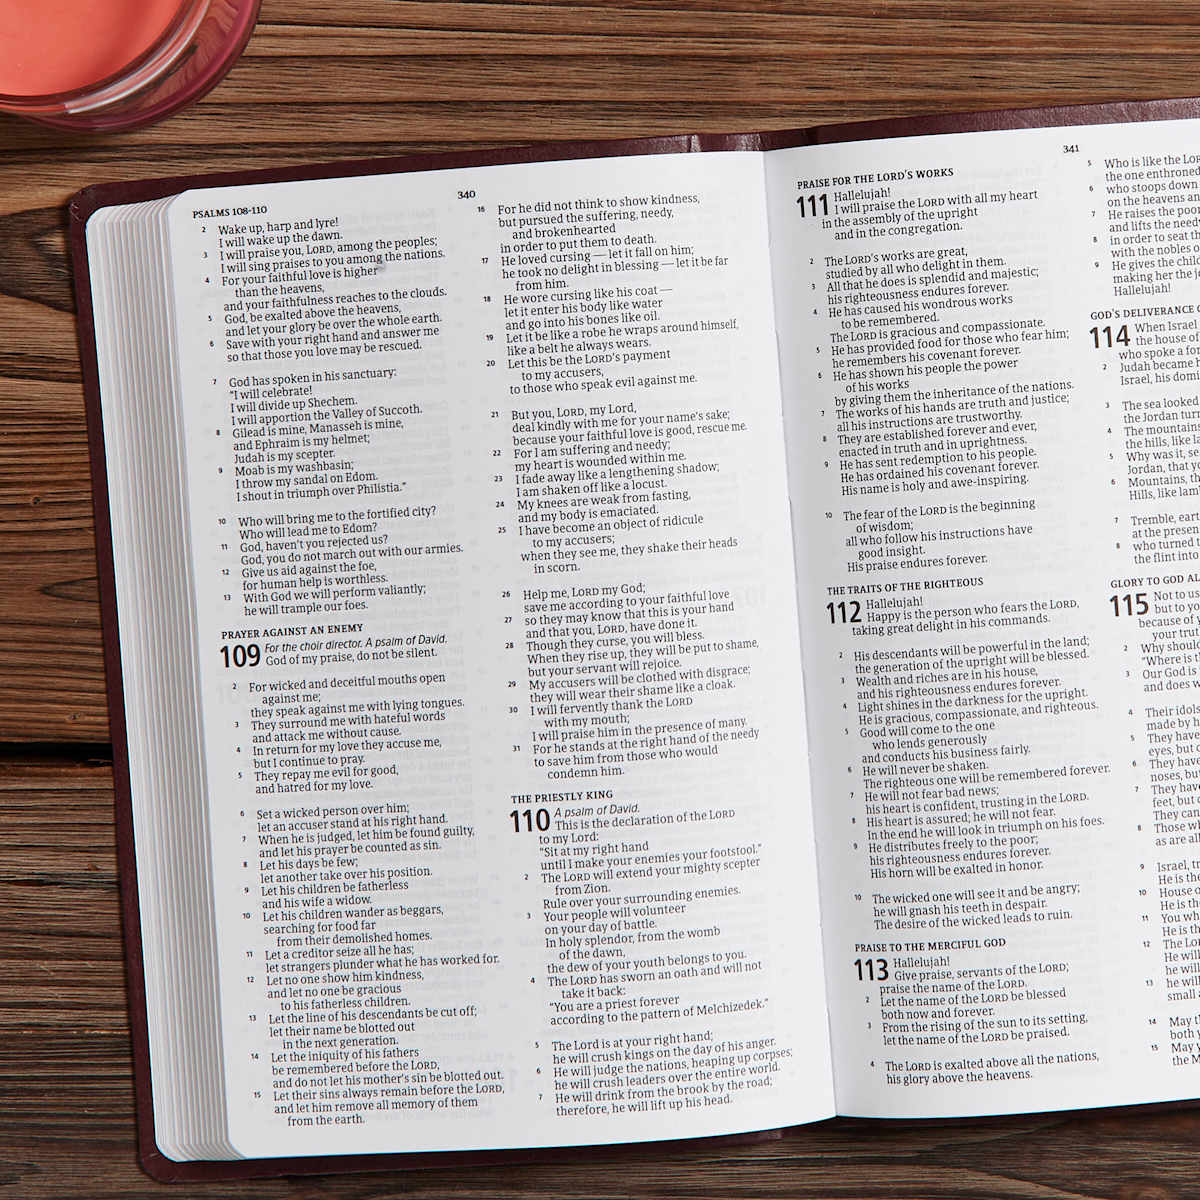 PSALMS 108-110
340
2 Wake up, harp and lyre!
I will wake up the dawn.
3 I will praise you, LORD, among the peoples;
I will sing praises to you among the nations.
4 For your faithful love is higher
than the heavens,
and your faithfulness reaches to the clouds.
5 God, be exalted above the heavens,
and let your glory be over the whole earth.
6 Save with your right hand and answer me
so that those you love may be rescued.
7 God has spoken in his sanctuary:
"I will celebrate!
I will divide up Shechem.
I will apportion the Valley of Succoth.
8 Gilead is mine, Manasseh is mine,
and Ephraim is my helmet;
Judah is my scepter.
9 Moab is my washbasin;
I throw my sandal on Edom.
I shout in triumph over Philistia."
10 Who will bring me to the fortified city?
Who will lead me to Edom?
11 God, haven't you rejected us?
God, you do not march out with our armies.
12 Give us aid against the foe,
for human help is worthless.
13 With God we will perform valiantly;
he will trample our foes.
PRAYER AGAINST AN ENEMY
109 For the choir director. A psalm of David.
God of my praise, do not be silent.
2 For wicked and deceitful mouths open
against me;
they speak against me with lying tongues.
3 They surround me with hateful words
and attack me without cause.
4 In return for my love they accuse me,
but I continue to pray.
5 They repay me evil for good,
and hatred for my love.
6 Set a wicked person over him;
let an accuser stand at his right hand.
7 When he is judged, let him be found guilty,
and let his prayer be counted as sin.
8 Let his days be few;
let another take over his position.
9 Let his children be fatherless
and his wife a widow.
10 Let his children wander as beggars,
searching for food far
from their demolished homes.
11 Let a creditor seize all he has;
let strangers plunder what he has worked for.
12 Let no one show him kindness,
and let no one be gracious
to his fatherless children.
13 Let the line of his descendants be cut off;
let their name be blotted out
in the next generation.
14 Let the iniquity of his fathers
be remembered before the LORD,
and do not let his mother's sin be blotted out.
15 Let their sins always remain before the LORD,
and let him remove all memory of them
from the earth.
16 For he did not think to show kindness,
but pursued the suffering, needy,
and brokenhearted
in order to put them to death.
17 He loved cursing — let it fall on him;
he took no delight in blessing — let it be far
from him.
18 He wore cursing like his coat —
let it enter his body like water
and go into his bones like oil.
19 Let it be like a robe he wraps around himself,
like a belt he always wears.
20 Let this be the LORD's payment
to my accusers,
to those who speak evil against me.
21 But you, LORD, my Lord,
deal kindly with me for your name's sake;
because your faithful love is good, rescue me.
22 For I am suffering and needy;
my heart is wounded within me.
23 I fade away like a lengthening shadow;
I am shaken off like a locust.
24 My knees are weak from fasting,
and my body is emaciated.
25 I have become an object of ridicule
to my accusers;
when they see me, they shake their heads
in scorn.
26 Help me, LORD my God;
save me according to your faithful love
27 so they may know that this is your hand
and that you, LORD, have done it.
28 Though they curse, you will bless.
When they rise up, they will be put to shame,
but your servant will rejoice.
29 My accusers will be clothed with disgrace;
they will wear their shame like a cloak.
30 I will fervently thank the LORD
with my mouth;
I will praise him in the presence of many.
31 For he stands at the right hand of the needy
to save him from those who would
condemn him.
THE PRIESTLY KING
110 A psalm of David.
This is the declaration of the LORD
to my Lord:
"Sit at my right hand
until I make your enemies your footstool."
2 The LORD will extend your mighty scepter
from Zion.
Rule over your surrounding enemies.
3 Your people will volunteer
on your day of battle.
In holy splendor, from the womb
of the dawn,
the dew of your youth belongs to you.
4 The LORD has sworn an oath and will not
take it back:
"You are a priest forever
according to the pattern of Melchizedek."
5 The Lord is at your right hand;
he will crush kings on the day of his anger.
6 He will judge the nations, heaping up corpses;
he will crush leaders over the entire world.
7 He will drink from the brook by the road;
therefore, he will lift up his head.
341
PRAISE FOR THE LORD'S WORKS
111 Hallelujah!
I will praise the LORD with all my heart
in the assembly of the upright
and in the congregation.
2 The LORD's works are great,
studied by all who delight in them.
3 All that he does is splendid and majestic;
his righteousness endures forever.
4 He has caused his wondrous works
to be remembered.
The LORD is gracious and compassionate.
5 He has provided food for those who fear him;
he remembers his covenant forever.
6 He has shown his people the power
of his works
by giving them the inheritance of the nations.
7 The works of his hands are truth and justice;
all his instructions are trustworthy.
8 They are established forever and ever,
enacted in truth and in uprightness.
9 He has sent redemption to his people.
He has ordained his covenant forever.
His name is holy and awe-inspiring.
10 The fear of the LORD is the beginning
of wisdom;
all who follow his instructions have
good insight.
His praise endures forever.
THE TRAITS OF THE RIGHTEOUS
112 Hallelujah!
Happy is the person who fears the LORD,
taking great delight in his commands.
2 His descendants will be powerful in the land;
the generation of the upright will be blessed.
3 Wealth and riches are in his house,
and his righteousness endures forever.
4 Light shines in the darkness for the upright.
He is gracious, compassionate, and righteous.
5 Good will come to the one
who lends generously
and conducts his business fairly.
6 He will never be shaken.
The righteous one will be remembered forever.
7 He will not fear bad news;
his heart is confident, trusting in the LORD.
8 His heart is assured; he will not fear.
In the end he will look in triumph on his foes.
9 He distributes freely to the poor;
his righteousness endures forever.
His horn will be exalted in honor.
10 The wicked one will see it and be angry;
he will gnash his teeth in despair.
The desire of the wicked leads to ruin.
PRAISE TO THE MERCIFUL GOD
113 Hallelujah!
Give praise, servants of the LORD;
praise the name of the LORD.
2 Let the name of the LORD be blessed
both now and forever.
3 From the rising of the sun to its setting,
let the name of the LORD be praised.
4 The LORD is exalted above all the nations,
his glory above the heavens.
5 Who is like the
the one enthroned
6 who stoops down
on the heavens
7 He raises the
and lifts the
8 in order to seat
with the nobles
9 He gives the
making her the
Hallelujah!
GOD'S DELIVERANCE
114 When Israel
the house of
who spoke a
2 Judah became
Israel, his
3 The sea looked
the Jordan
4 The mountains
the hills, like
5 Why was it,
Jordan, that
6 Mountains,
Hills, like
7 Tremble,
at the
8 who turned
the flint into
GLORY TO GOD
115 Not to
but to
because of
your
2 Why should
"Where is
3 Our God is
and does
4 Their idols
made by
5 They have
eyes, but
6 They have
noses,
7 They have
feet, but
They
8 Those
as are
9 Israel,
He is the
10 House
He is
11 You
He is
12 The
He will
he will
13 he will
small
14 May
both
15 May
the